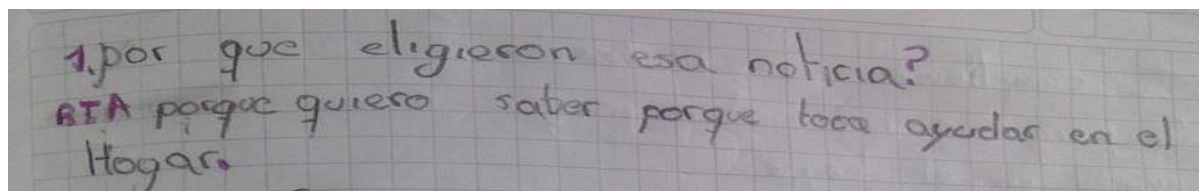 1. por que eligieron esa noticia?
RTA porque quiero saber porque toca ayudar en el
Hogar.